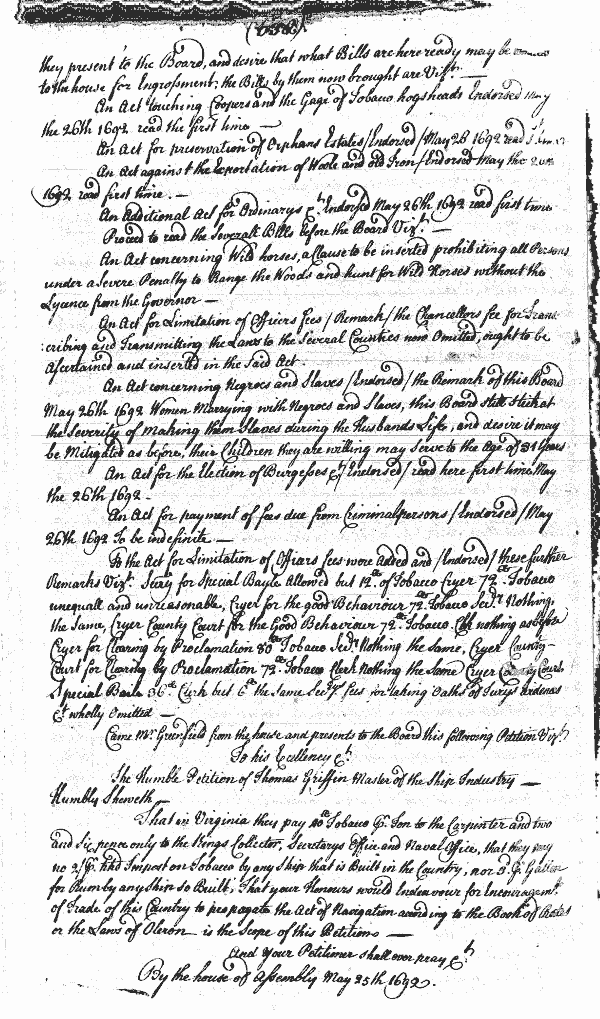 they present to the Board, and desire that what Bills are here ready may be
to the house for Engrossment; the Bills by them now brought are Vizt.
An Act touching Coopers and the Gage of Tobacco hogsheads Endorsed May
the 26th 1692 read the first time —
An Act for preservation of Orphans Estates/Endorsed/May 26 1692 read
An Act against the Exportation of Wooll and old Iron/Endorsed May the
1692 read first time. —
An Additional Act for Ordinarys &ct. Endorsed May 26th 1692 read first time
Proceed to read the Severall Bills before the Board Vizt. —
An Act concerning Wild horses, a Clause to be inserted prohibiting all Persons
under a Severe Penalty to Range the Woods and hunt for Wild Horses without the
Lycence from the Governor —
An Act for Limitation of Officers fees / Remark / the Chancellors fee for Trans
:cribing and Transmitting the Laws to the Several Counties now Omitted, ought to be
Ascertained and inserted in the Said Act.
An Act concerning Negros and Slaves /Endorsed/ the Remark of this Board
May 26th 1692 Women Marrying with Negros and Slaves, this Board still stick at
the Severity of making them Slaves during the Husbands Life, and desire it may
be Mitigated as before, their Children they are willing may Serve to the Age of 31 Years
An Act for the Election of Burgesses &ct/Endorsed/ read here first time May
the 26th 1692 –
An Act for payment of fees due from Criminal persons /Endorsed/ May
26th 1692 To be indefinite —
To the Act for Limitation of Officers fees were added and /Endorsed/ these further
Remarks Vizt. Secry for Special Bayle Allowed but 12 of Tobacco Cryer 72. Tobacco
unequall and unreasonable, Cryer for the good Behaviour 72. Tobacco Secry. Nothing,
the Same, Cryer County Court for the Good Behaviour 72. Tobacco. Clk nothing as before
Cryer for Clearing by Proclamation 80 Tobacco Secry Nothing the Same, Cryer County
Court for Clearing by Proclamation 72. Tobacco Clerk Nothing the Same Cryer County Court
Special Baile 36 Clerk but 6 the Same Secrys fees for taking Oaths of Jurys
&ct wholly Omitted —
Came Mr. Greenfield from the house and presents to the Board this following Petition Vizt.
To his Excellency &ct.
The Humble Petition of Thomas Griffin Master of the Ship Industry —
Humbly Sheweth
That in Virginia they pay Tobacco P. Ton to the Carpenter and two
and Six pence only to the Kings Collector, Secretarys Office and Naval Office, that they pay
no 2/ P. hhd Impost on Tobacco by any Ship that is Built in the Country, nor 3. P. Gallon
for Rum by any Ship so Built; That your Honours would Endeavour for Encouragemt.
of Trade of this Country to propagate the Act of Navigation according to the Book of Rates
or the Laws of Oleron is the Scope of this Petition —
And Your Petitioner shall ever pray &ct.
By the house of Assembly May 25th 1692.